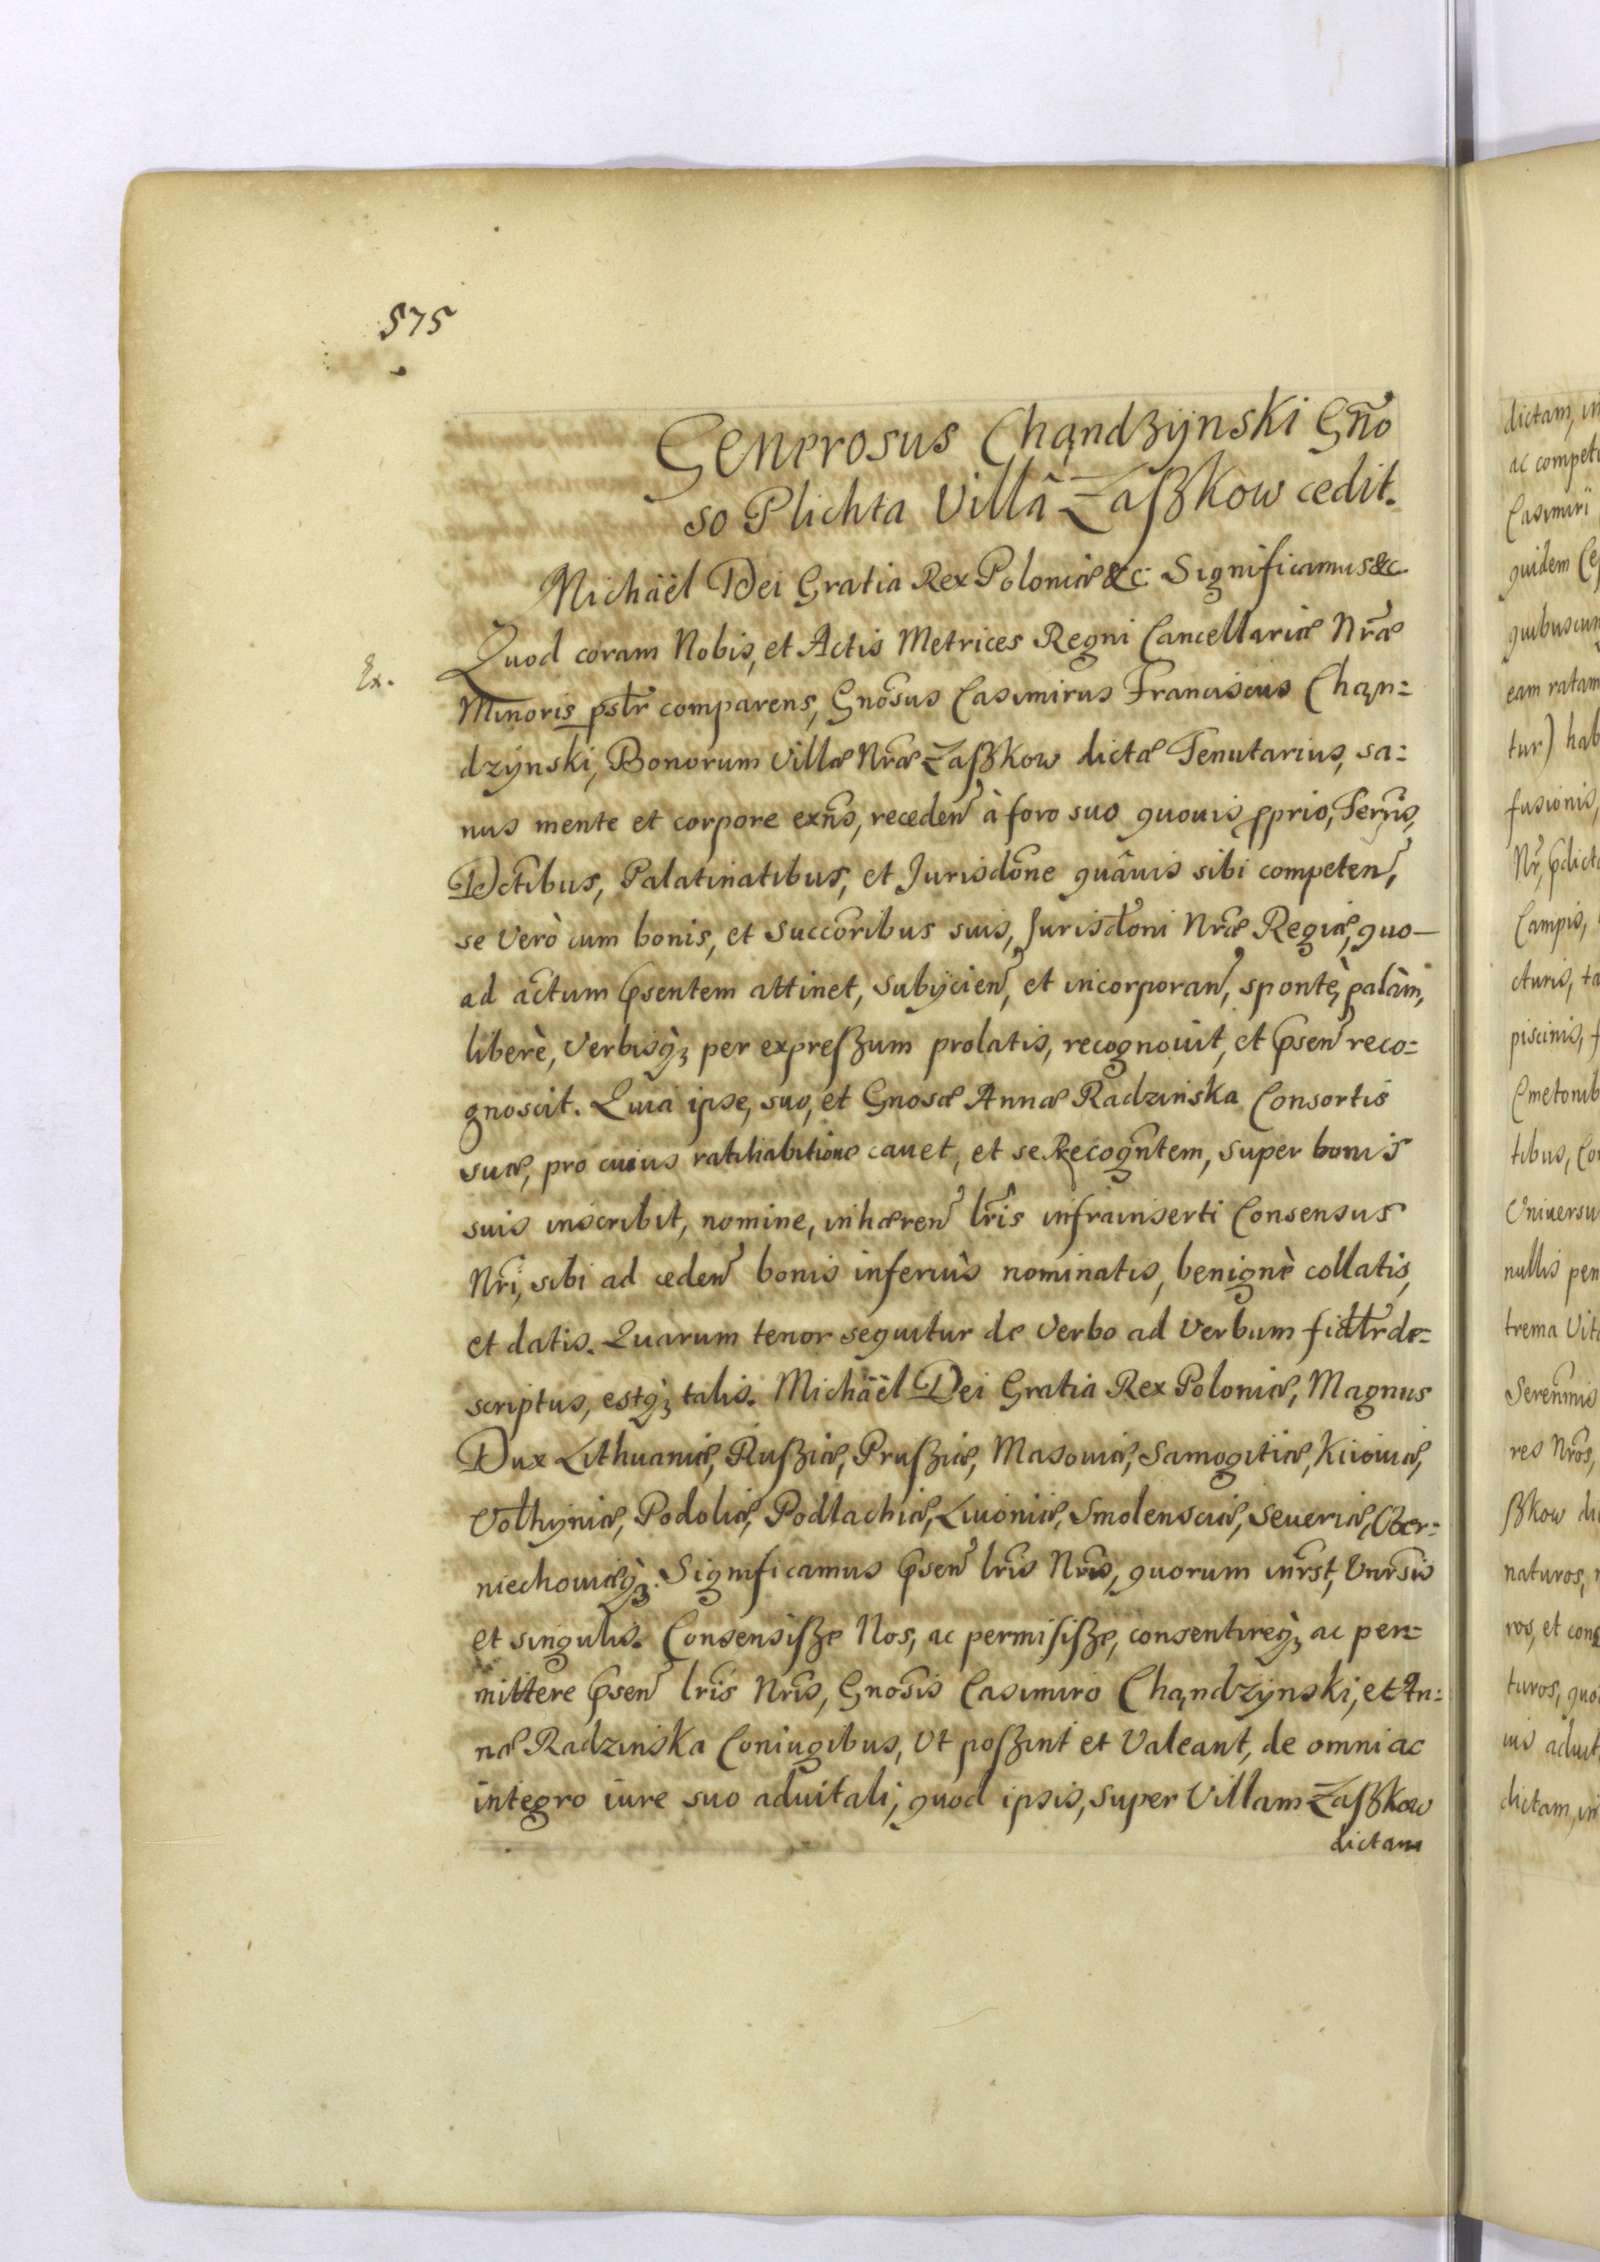 575
Generosus Chądzÿnski Gño
so Plichta Villâ Zaszkow cedit.
Michäel Dei Gratia Rex Poloniæ &c. Significamus &c
Quod coram Nobis, et Actis Metrices Regni Cancellariæ Nr̃æ
Ex.
Minoris pslr̃ comparens, Gnosus Casimirus Franciscus Chąn=
dzÿnski, Bonorum Villæ Nræ Zaszkow dictæ Tenutarius, sa=
nus mente et corpore exñs, receden̄ à foro suo quouis pprio, Terris,
Dctibus, Palatinatibus, et Jurisdõne quâuis sibi competen̄,
se verò cum bonis, et Succoribus suis, Jurisdoni Nræ Regiæ, quo—
ad actum psentem attinet, subÿcien̄, et incorporan̄, spontè, palàm,
liberè, Verbisq̀; per expreszum prolatis, recognouit, et psen̄ reco=
gnoscit. Quia ipse, suo, et Gnosæ Annæ Radzinska Consortis
suæ, pro cuius ratihabitione cauet, et se Recogñtem, super bonis
suis inscribit, nomine, inhæren̄ lris infrainserti Consensus
Nri, sibi ad ceden̄ bonis inferiùs nominatis, benignè collatis,
et datis. Quarum tenor sequitur de Verbo ad Verbum fidlr de=
scriptus, estq̀; talis. Michäel Dei Gratia Rex Poloniæ, Magnus
Dux Lithuaniæ, Rusziæ, Prusziæ, Masouiæ, Samogitiæ, Kiiouiæ,
Volhyniæ, Podoliæ, Podlachiæ, Liuoniæ, Smolensciæ, Seueriæ, Czer=
niechouiæq̀;. Significamus psen̄ lris Nris, quorum inrst, Vnrsis
et singulis. Consensisze Nos, ac permisisze, consentireq̀; ac per=
mittere psen̄ lris Nris, Gnosis Casimiro Chąndzÿnski, et An=
næ Radzinska Coniugibus, Vt poszint et Valeant, de omni ac
integro iure suo aduitali, quod ipsis, super Villam Zaszkow
dictam
dictam, in
ac compet
Casimiri
quidem
quibuscun
eam ratam
tur) hab
fusionis,
Nr, pdict
Campis,
cturis, ta
piscinis, f
Cmetonib
tibus,
Uniuersu
nullis pen
trema Vit
Serenmis
res Nros,
szkow di
naturos,
ros, et con
turos, quo
uis aduit
dictam, in